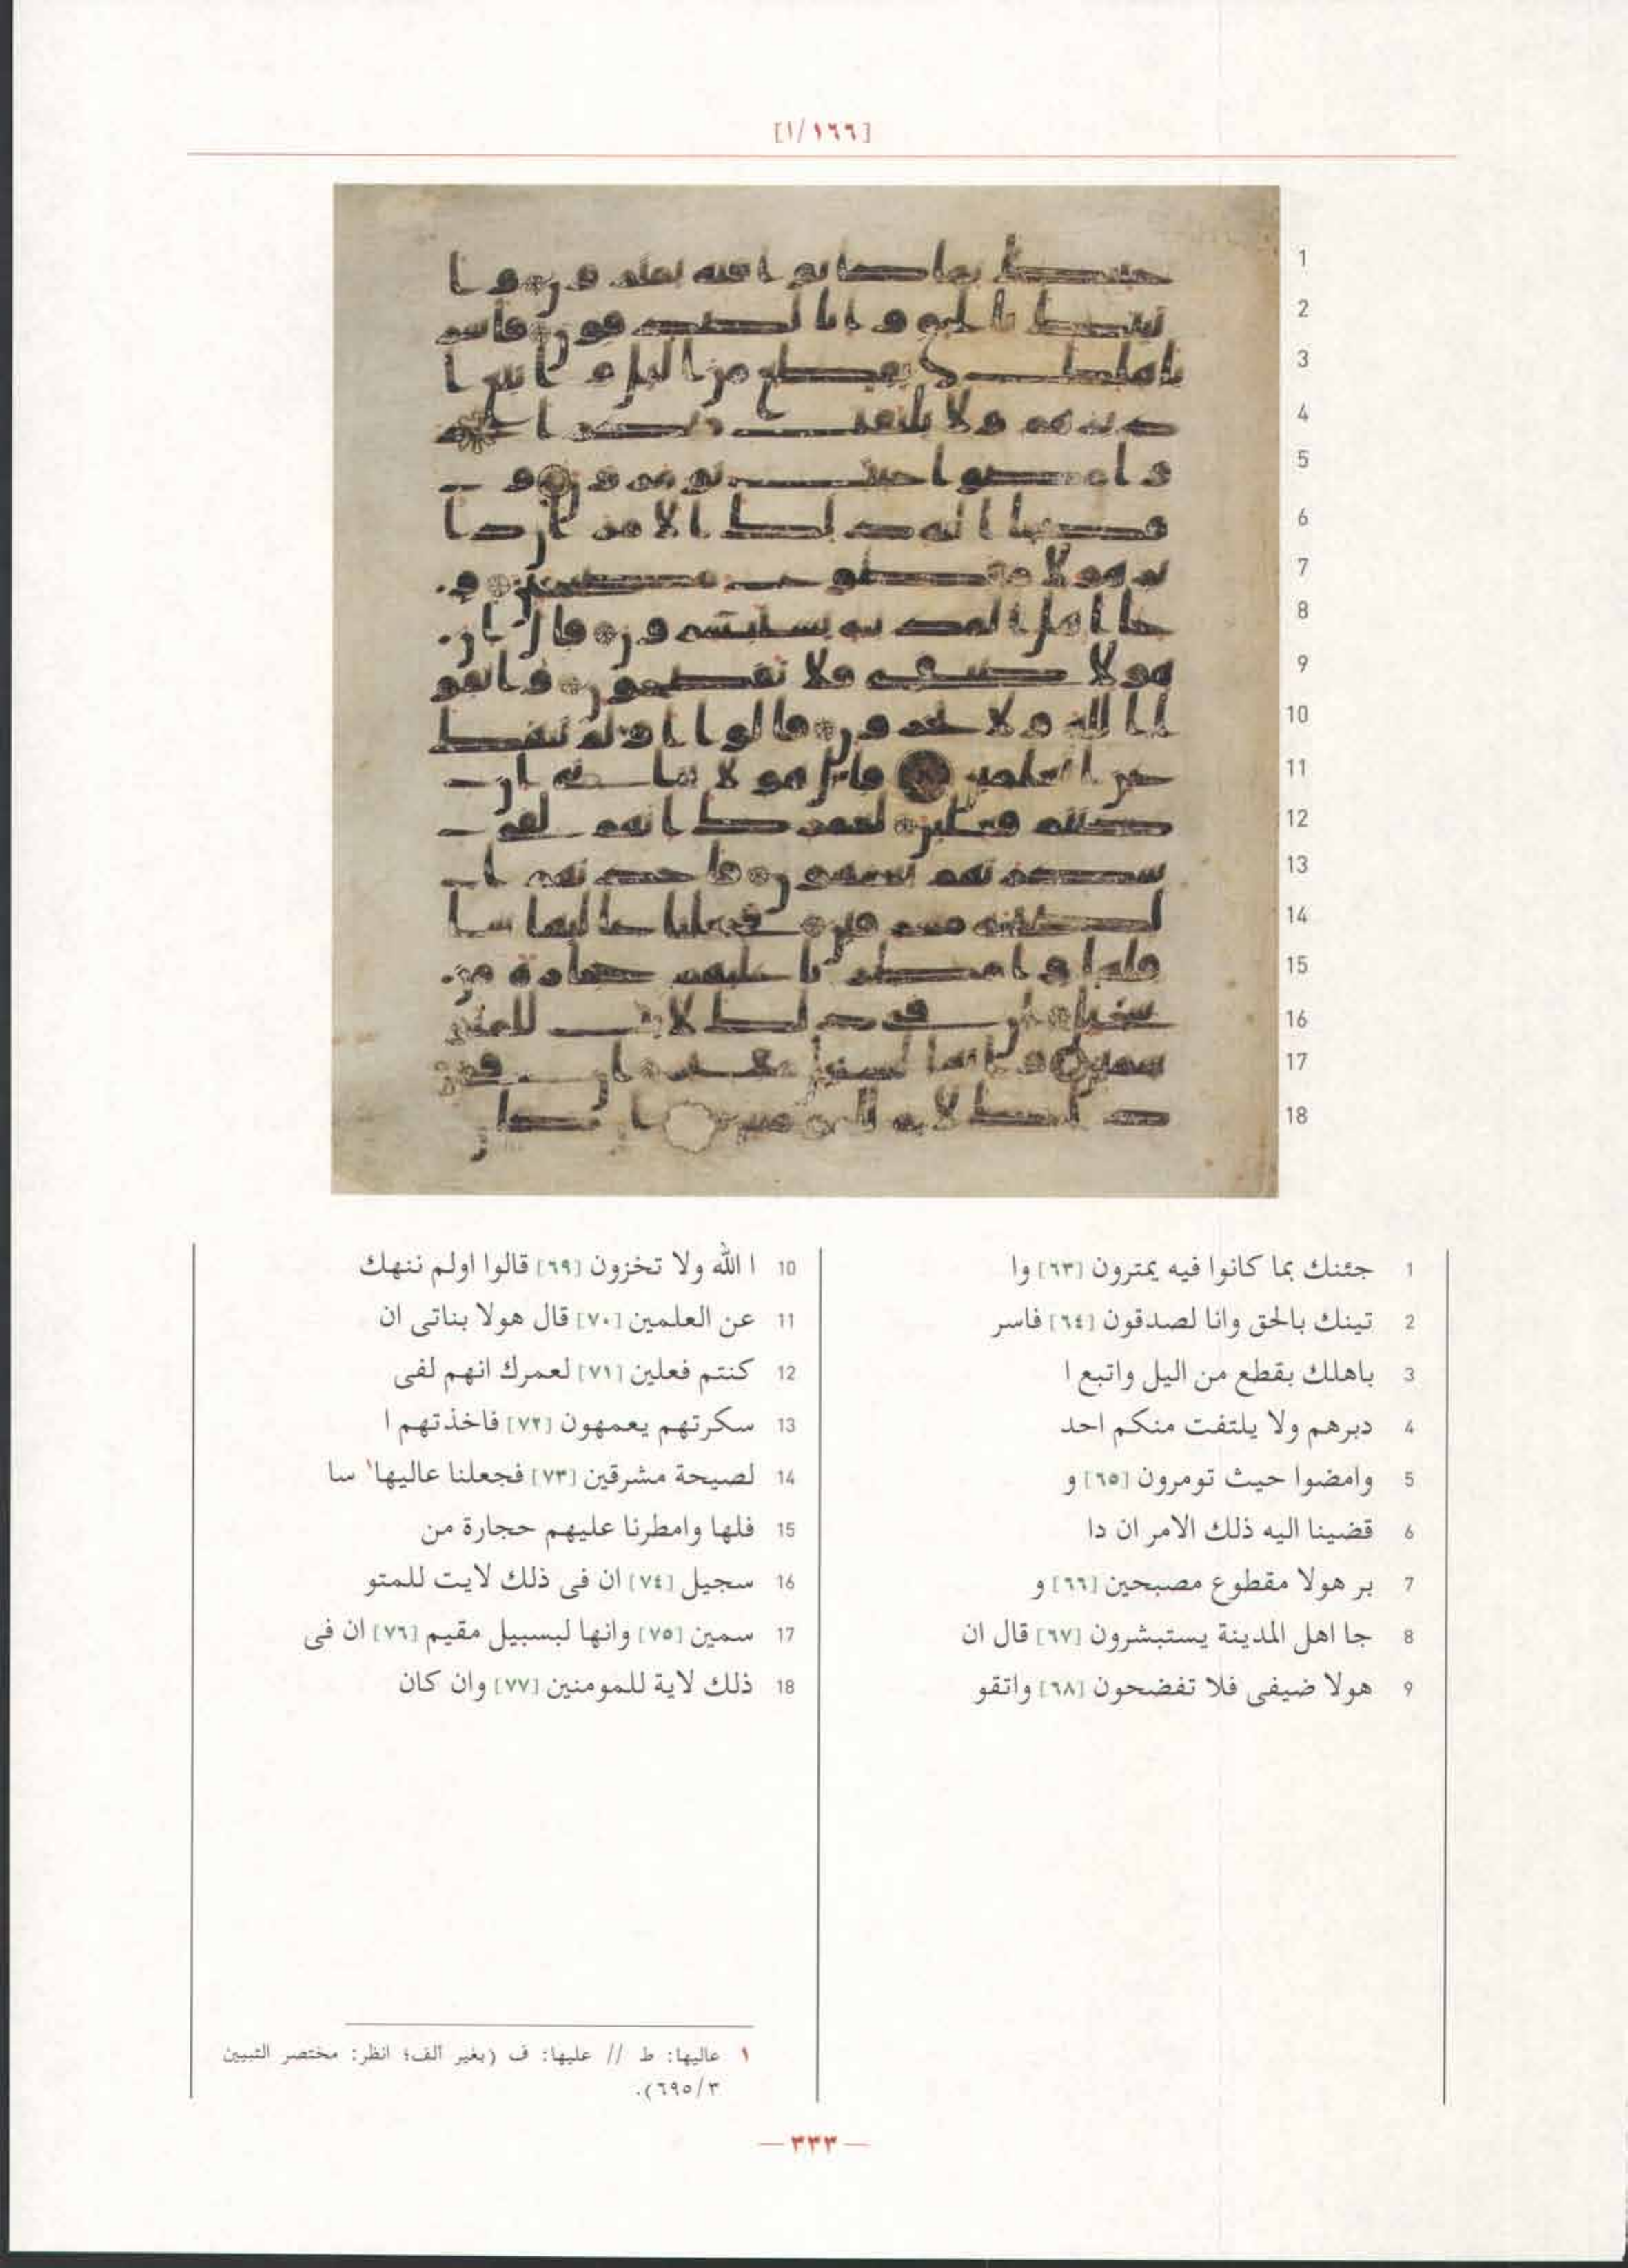 [١/١٦٦]
1 جئنك بما كانوا فيه يمترون [٦٣] وا
2 تينك بالحق وانا لصدقون [٦٤] فاسر
3 باهلك بقطع من اليل واتبع ا
4 دبرهم ولا يلتفت منكم احد
5 وامضوا حيث تومرون [٦٥] و
6 قضينا اليه ذلك الامر ان دا
7 بر هولا مقطوع مصبحين [٦٦] و
8 جا اهل المدينة يستبشرون [٦٧] قال ان
9 هولا ضيفى فلا تفضحون [٦٨] واتقو
10 ا الله ولا تخزون [٦٩] قالوا اولم ننهك
11 عن العلمين [٧٠] قال هولا بناتى ان
12 كنتم فعلين [٧١] لعمرك انهم لفى
13 سكرتهم يعمهون [٧٢] فاخذتهم ا
14 لصيحة مشرقين [٧٣] فجعلنا عاليها١ سا
15 فلها وامطرنا عليهم حجارة من
16 سجيل [٧٤] ان فى ذلك لايت للمتو
17 سمين [٧٥] وانها لبسبيل مقيم [٧٦] ان فى
18 ذلك لاية للمومنين [٧٧] وان كان
١ عاليها: ط // عليها: ف (بغير ألف؛ انظر: مختصر التبيين
٦٩٥/٣).
— ٣٣٣ —